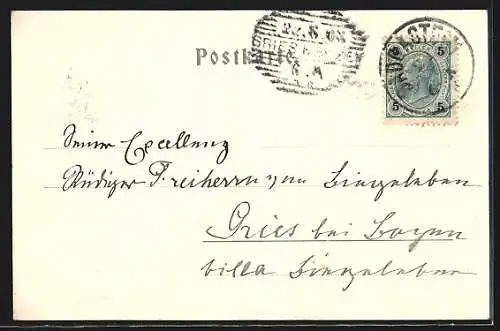 Postkarte
22.8.03
GRIES B. BOZEN
5 5
5 5
Seiner Excellenz
Rüdiger Freiherrn von Biegeleben
Gries bei Bozen
Villa Biegeleben